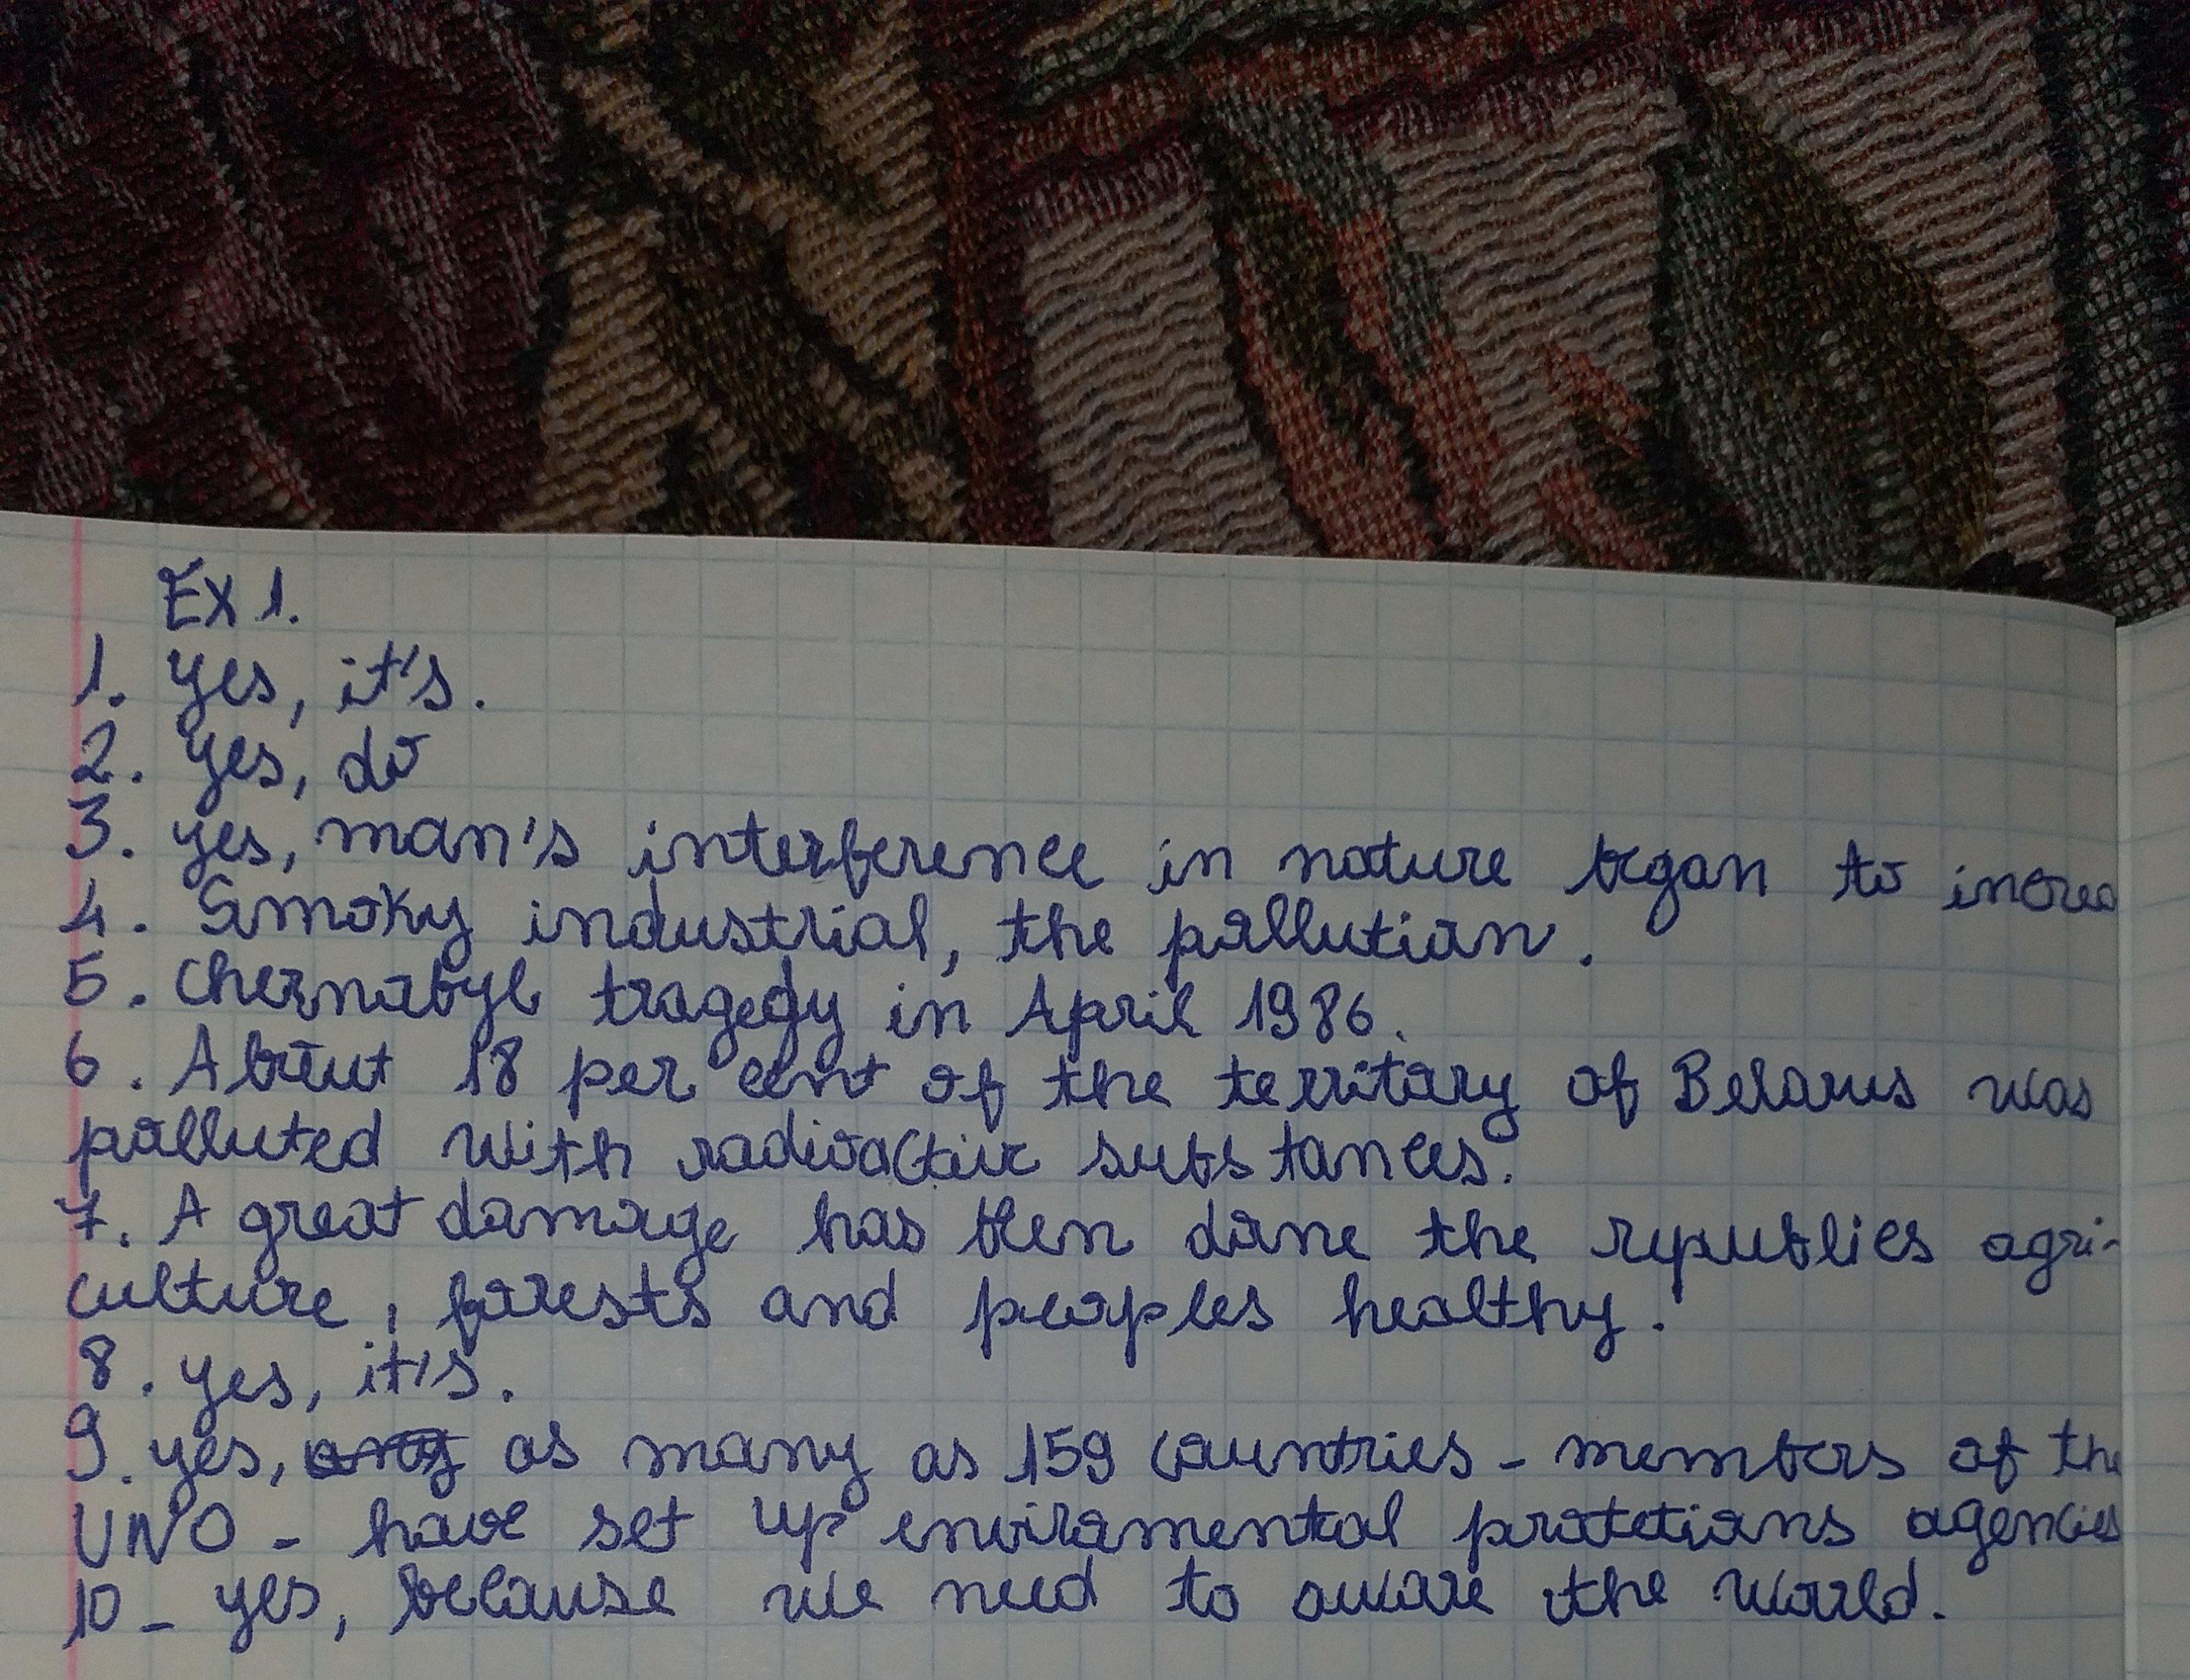 Ex 1.
1. yes, it's.
2. yes, do
3. yes, man's interference in nature began to increa
4. Smoky industrial, the pollution.
5. Chernobyl tragedy in April 1986.
6. About 18 per cent of the territory of Belarus was
polluted with substances.
7. A great damage has been done the republies agri-
culture, forests and peoples healthy.
8. yes, it's.
9. yes, as many as 159 countries - members of the
UNO - have set up enviromental agencies
10 - yes, because we need to aware the world.